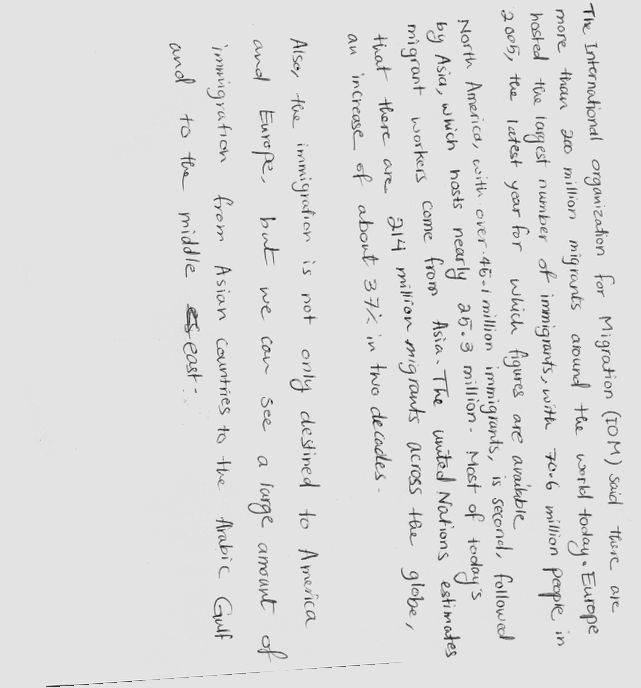 The International organization for Migration (IOM) said there are
more than 200 million migrants around the world today. Europe
hosted the largest number of immigrants, with 70.6 million people in
2005, the latest year for which figures are available
North America, with over 45.1 million immigrants, is second, followed
by Asia, which hosts nearly 25.3 million. Most of today's
migrant workers come from Asia. The united Nations estimates
that there are 214 million migrants across the globe,
an increase of about 37% in two decades.
Also, the immigration is not only destined to America
and Europe, but we can see a large amount of
immigration from Asian countries to the Arabic Gulf
and to the middle east.